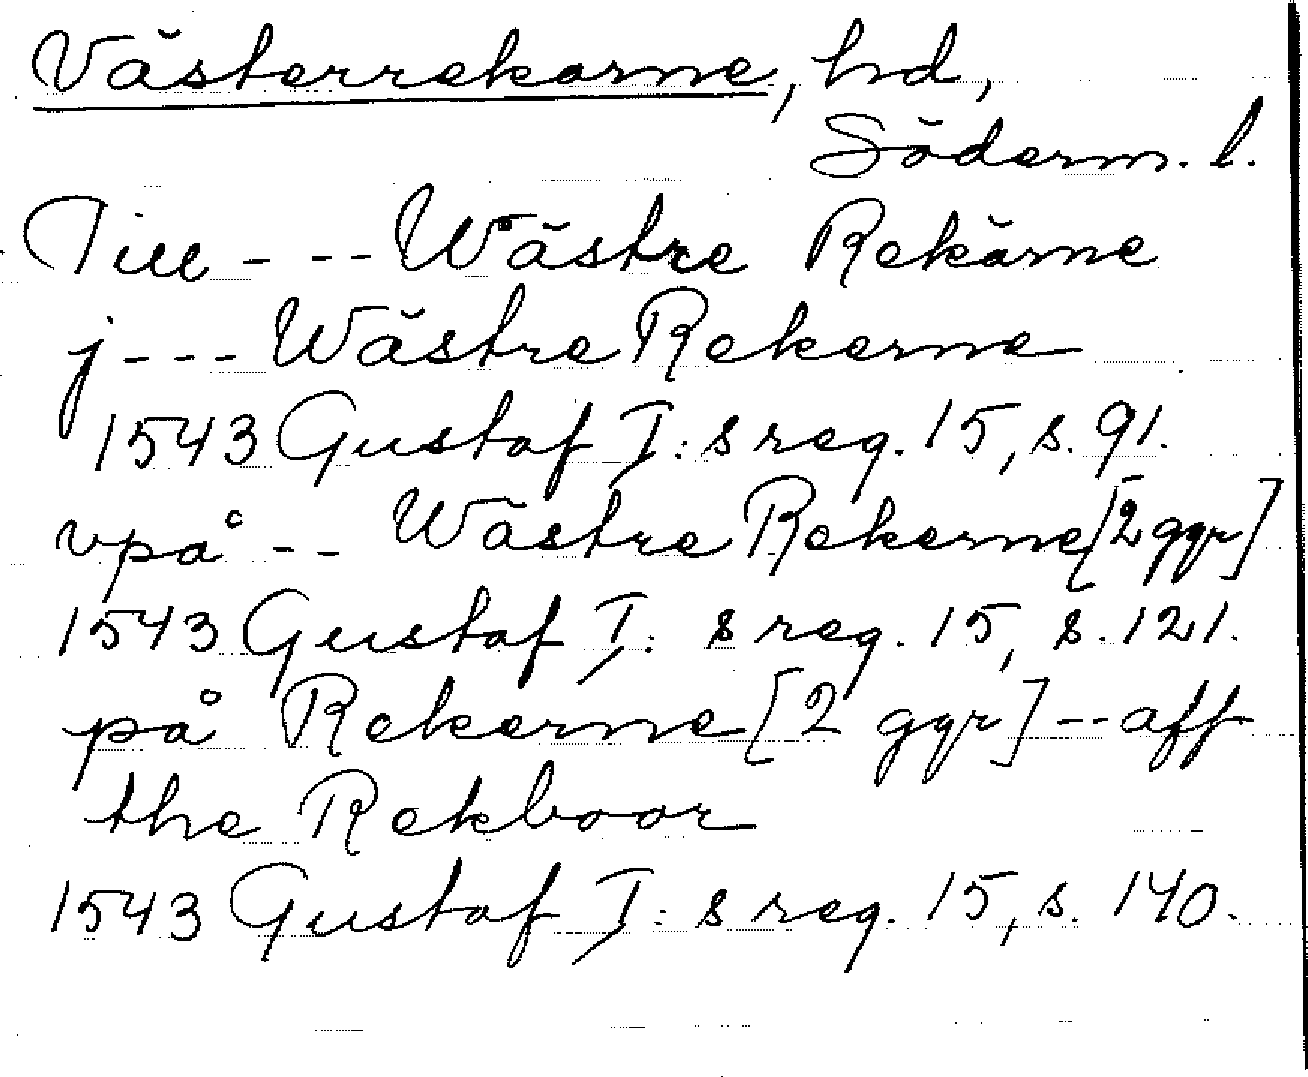 Västerrekarne, hd,
Söderm. l.
Till - - - Wästre Rekärne
j - - - Wästre Rekerne
1543 Gustaf I:s reg. 15, s. 91.
vpå - - Wästre Rekerne [2 ggr]
1543 Gustaf I:s reg. 15, s. 121.
på Rekerne [2 ggr] - - aff
the Rekboor
1543 Gustaf I:s reg. 15, s. 140.